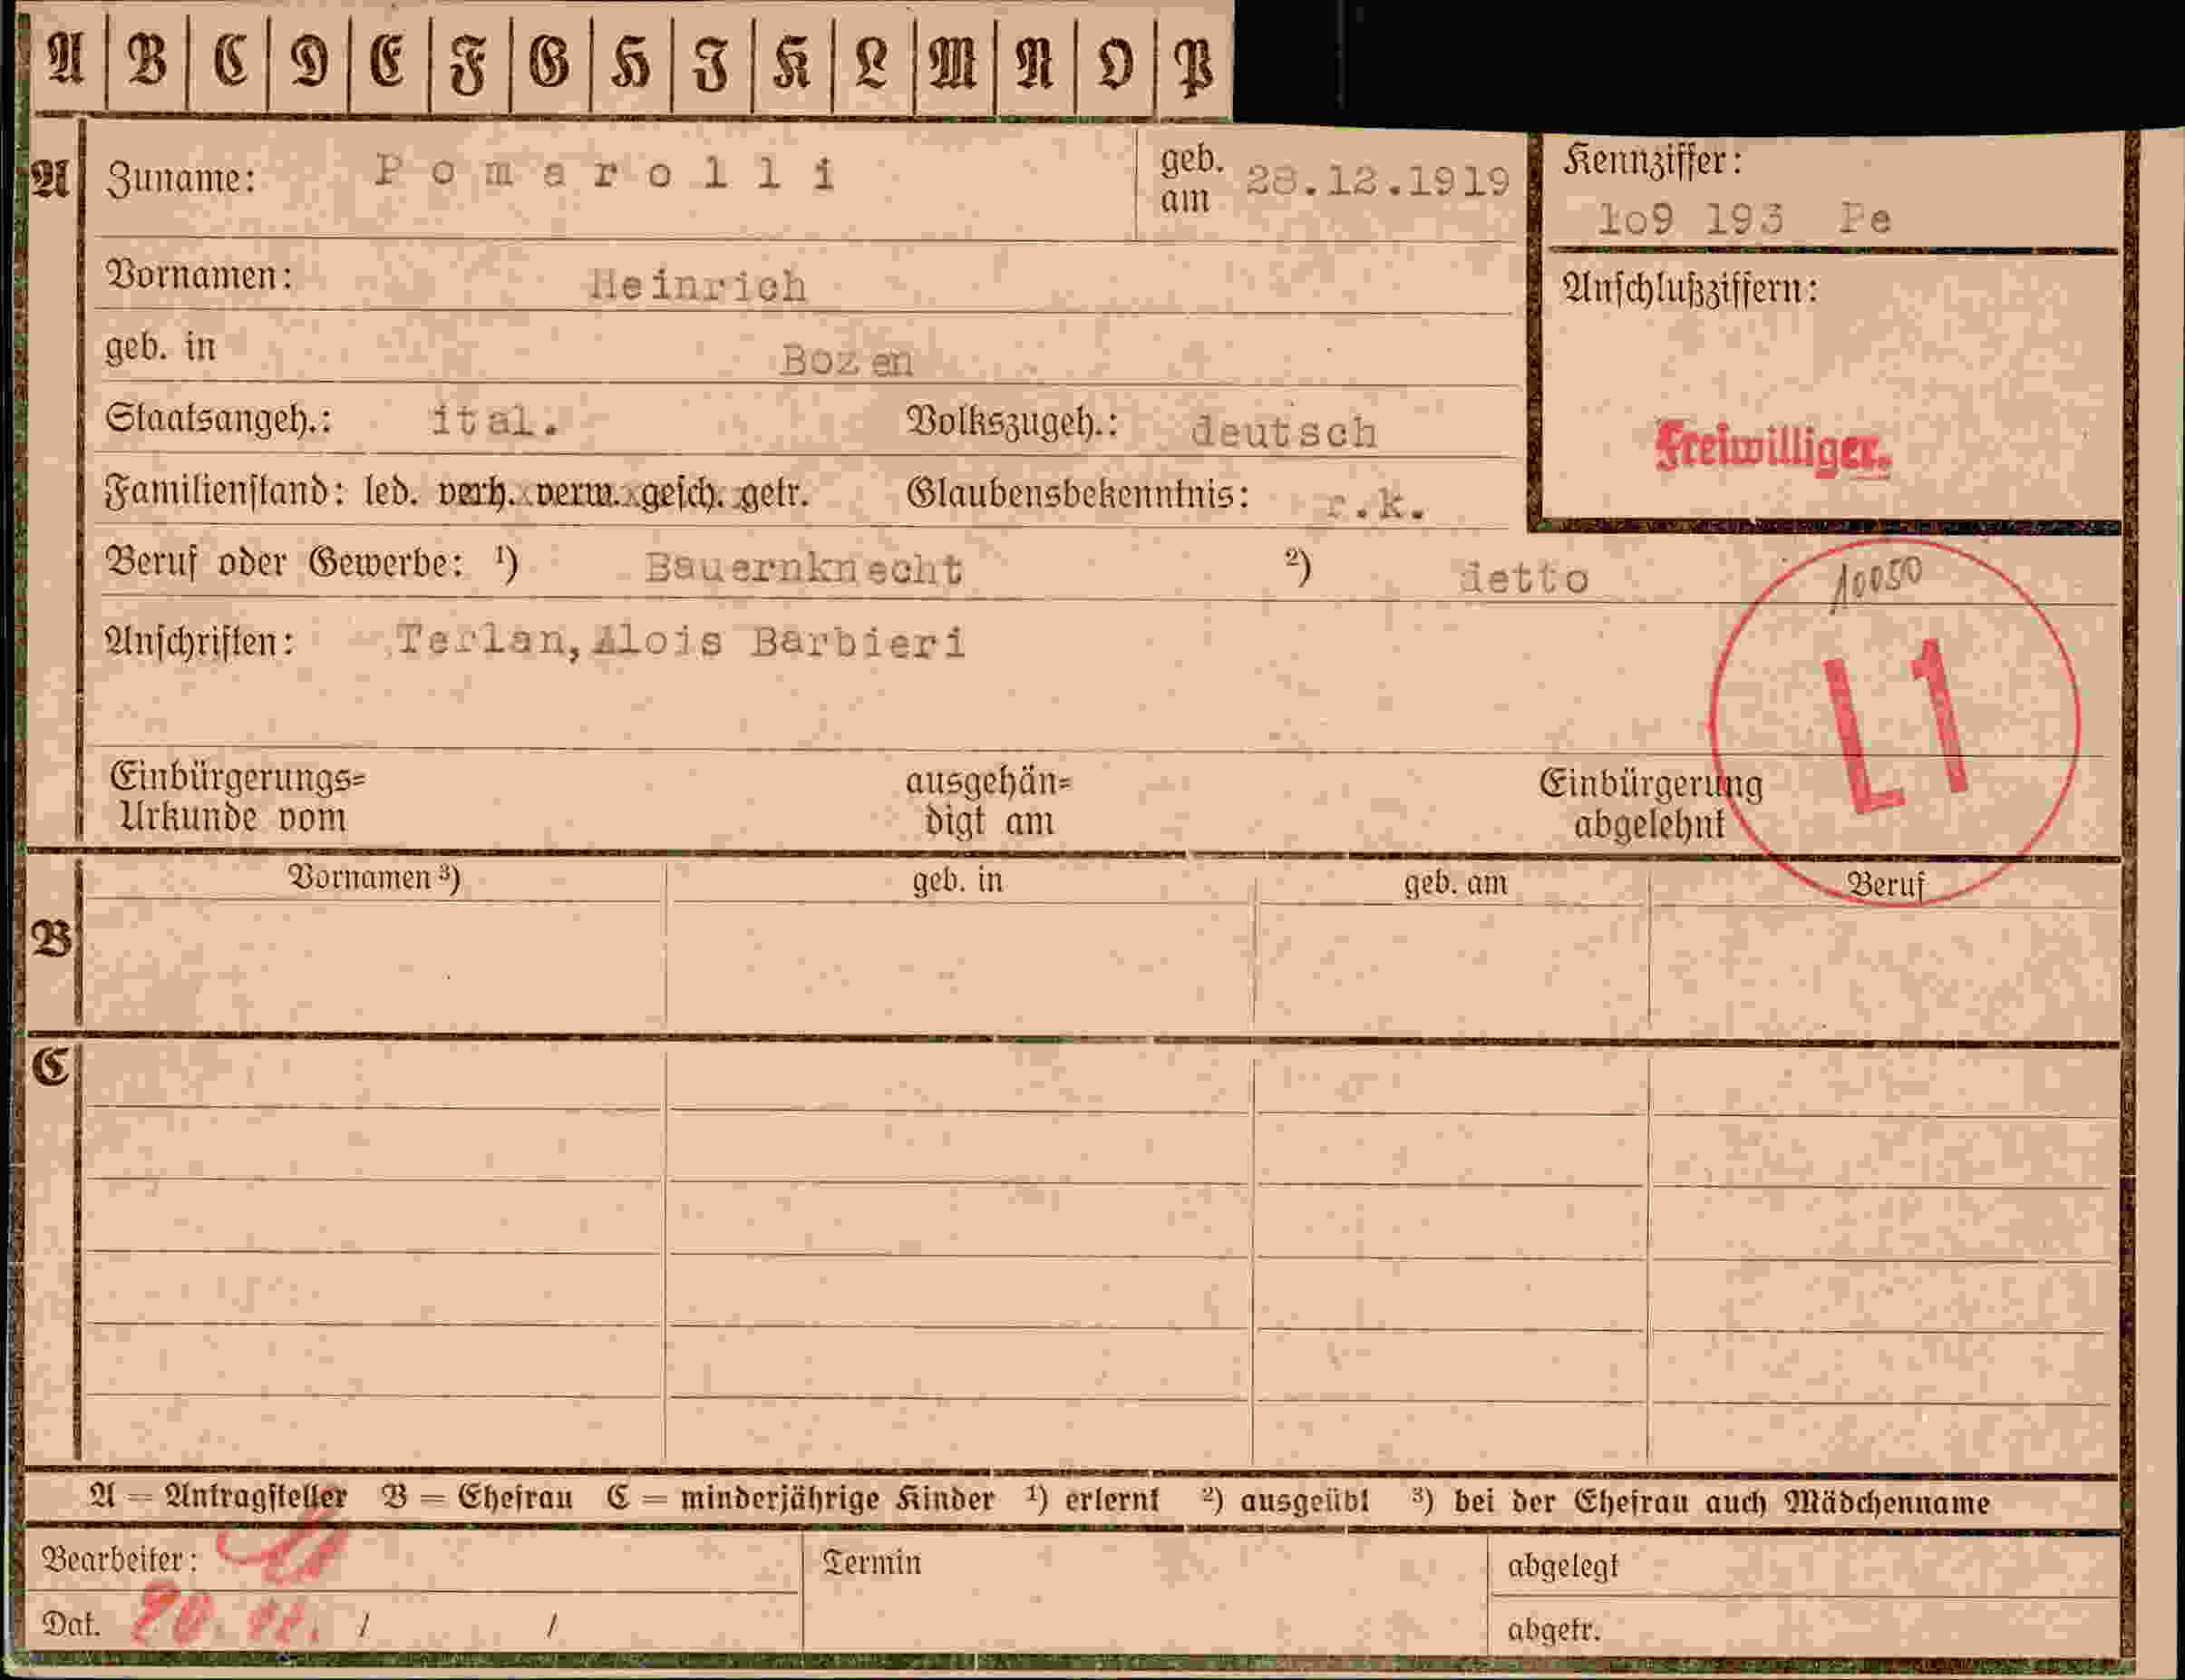 A B C D E F G H I K L M N O P
A Zuname: Pomarolli geb. am 28.12.1919 Kennziffer:
1o9 193 Pe
Vornamen: Heinrich Anschlußziffern:
geb. in Bozen
Staatsangeh.: ital. Volkszugeh.: deutsch Freiwilliger.
Familienstand: led. verh. verw. gesch. getr. Glaubensbekenntnis: r.k.
Beruf oder Gewerbe: ¹) Bauernknecht ²) detto 10050
Anschriften: Terlan, Alois Barbieri
L1
Einbürgerungs= ausgehän= Einbürgerung
Urkunde vom digt am abgelehnt
Vornamen ³) geb. in geb. am Beruf
B
C
A = Antragsteller B = Ehefrau C = minderjährige Kinder ¹) erlernt ²) ausgeübt ³) bei der Ehefrau auch Mädchenname
Bearbeiter: Termin abgelegt
Dat. / / abgetr.